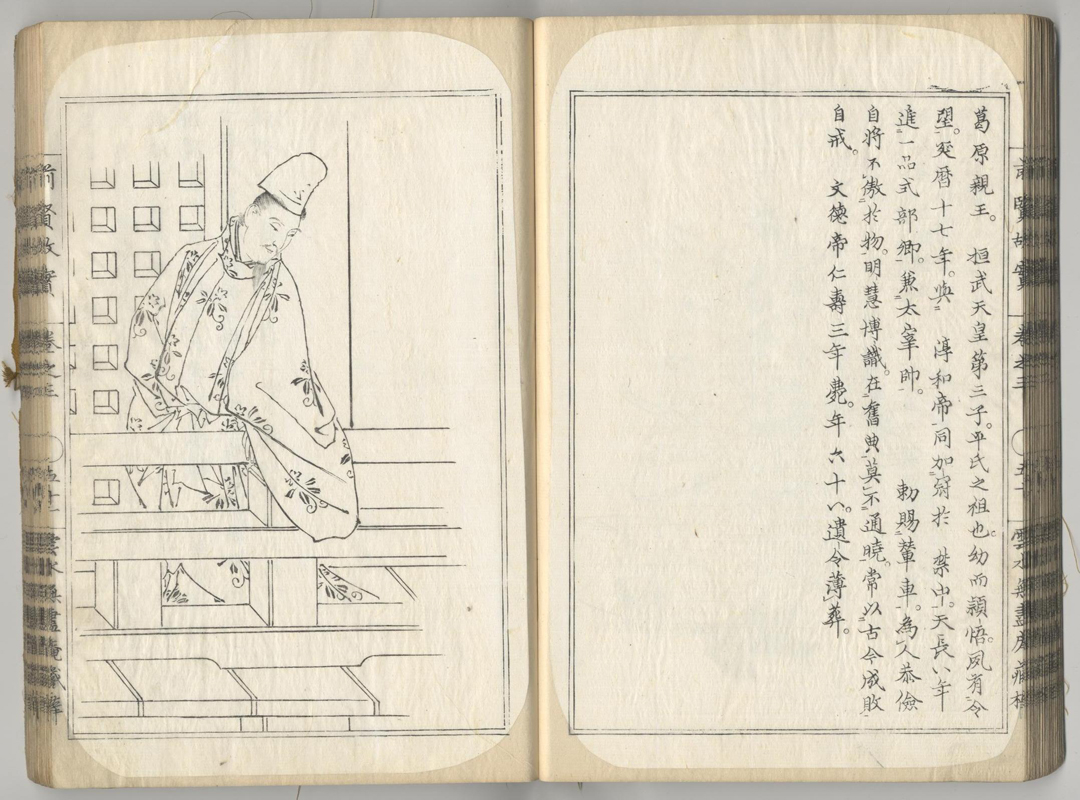 葛原親王。 桓武天皇第三子。平氏之祖也。幼而穎悟。夙有令
望。延暦十七年。與 淳和帝同加冠於 禁中。天長八年
進一品式部卿。兼太宰帥。 勅賜輦車。為人恭儉
自將不傲於物。明慧博識。在舊典莫不通曉。常以古今成敗
自戒。 文德帝仁壽三年薨。年六十八。遺令薄葬。
前賢故實 卷之三 五十 雲水無盡庵藏
前賢故實 卷之三 雲水無盡庵藏